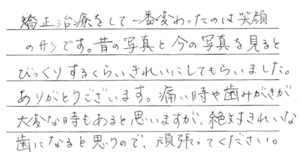 矯正治療をして一番変わったのは笑顔
の形です。昔の写真と今の写真を見ると
びっくりするくらいきれいにしてもらいました。
ありがとうございます。痛い時や歯みがきが
大変な時もあると思いますが、絶対きれいな
歯になると思うので、頑張ってください。